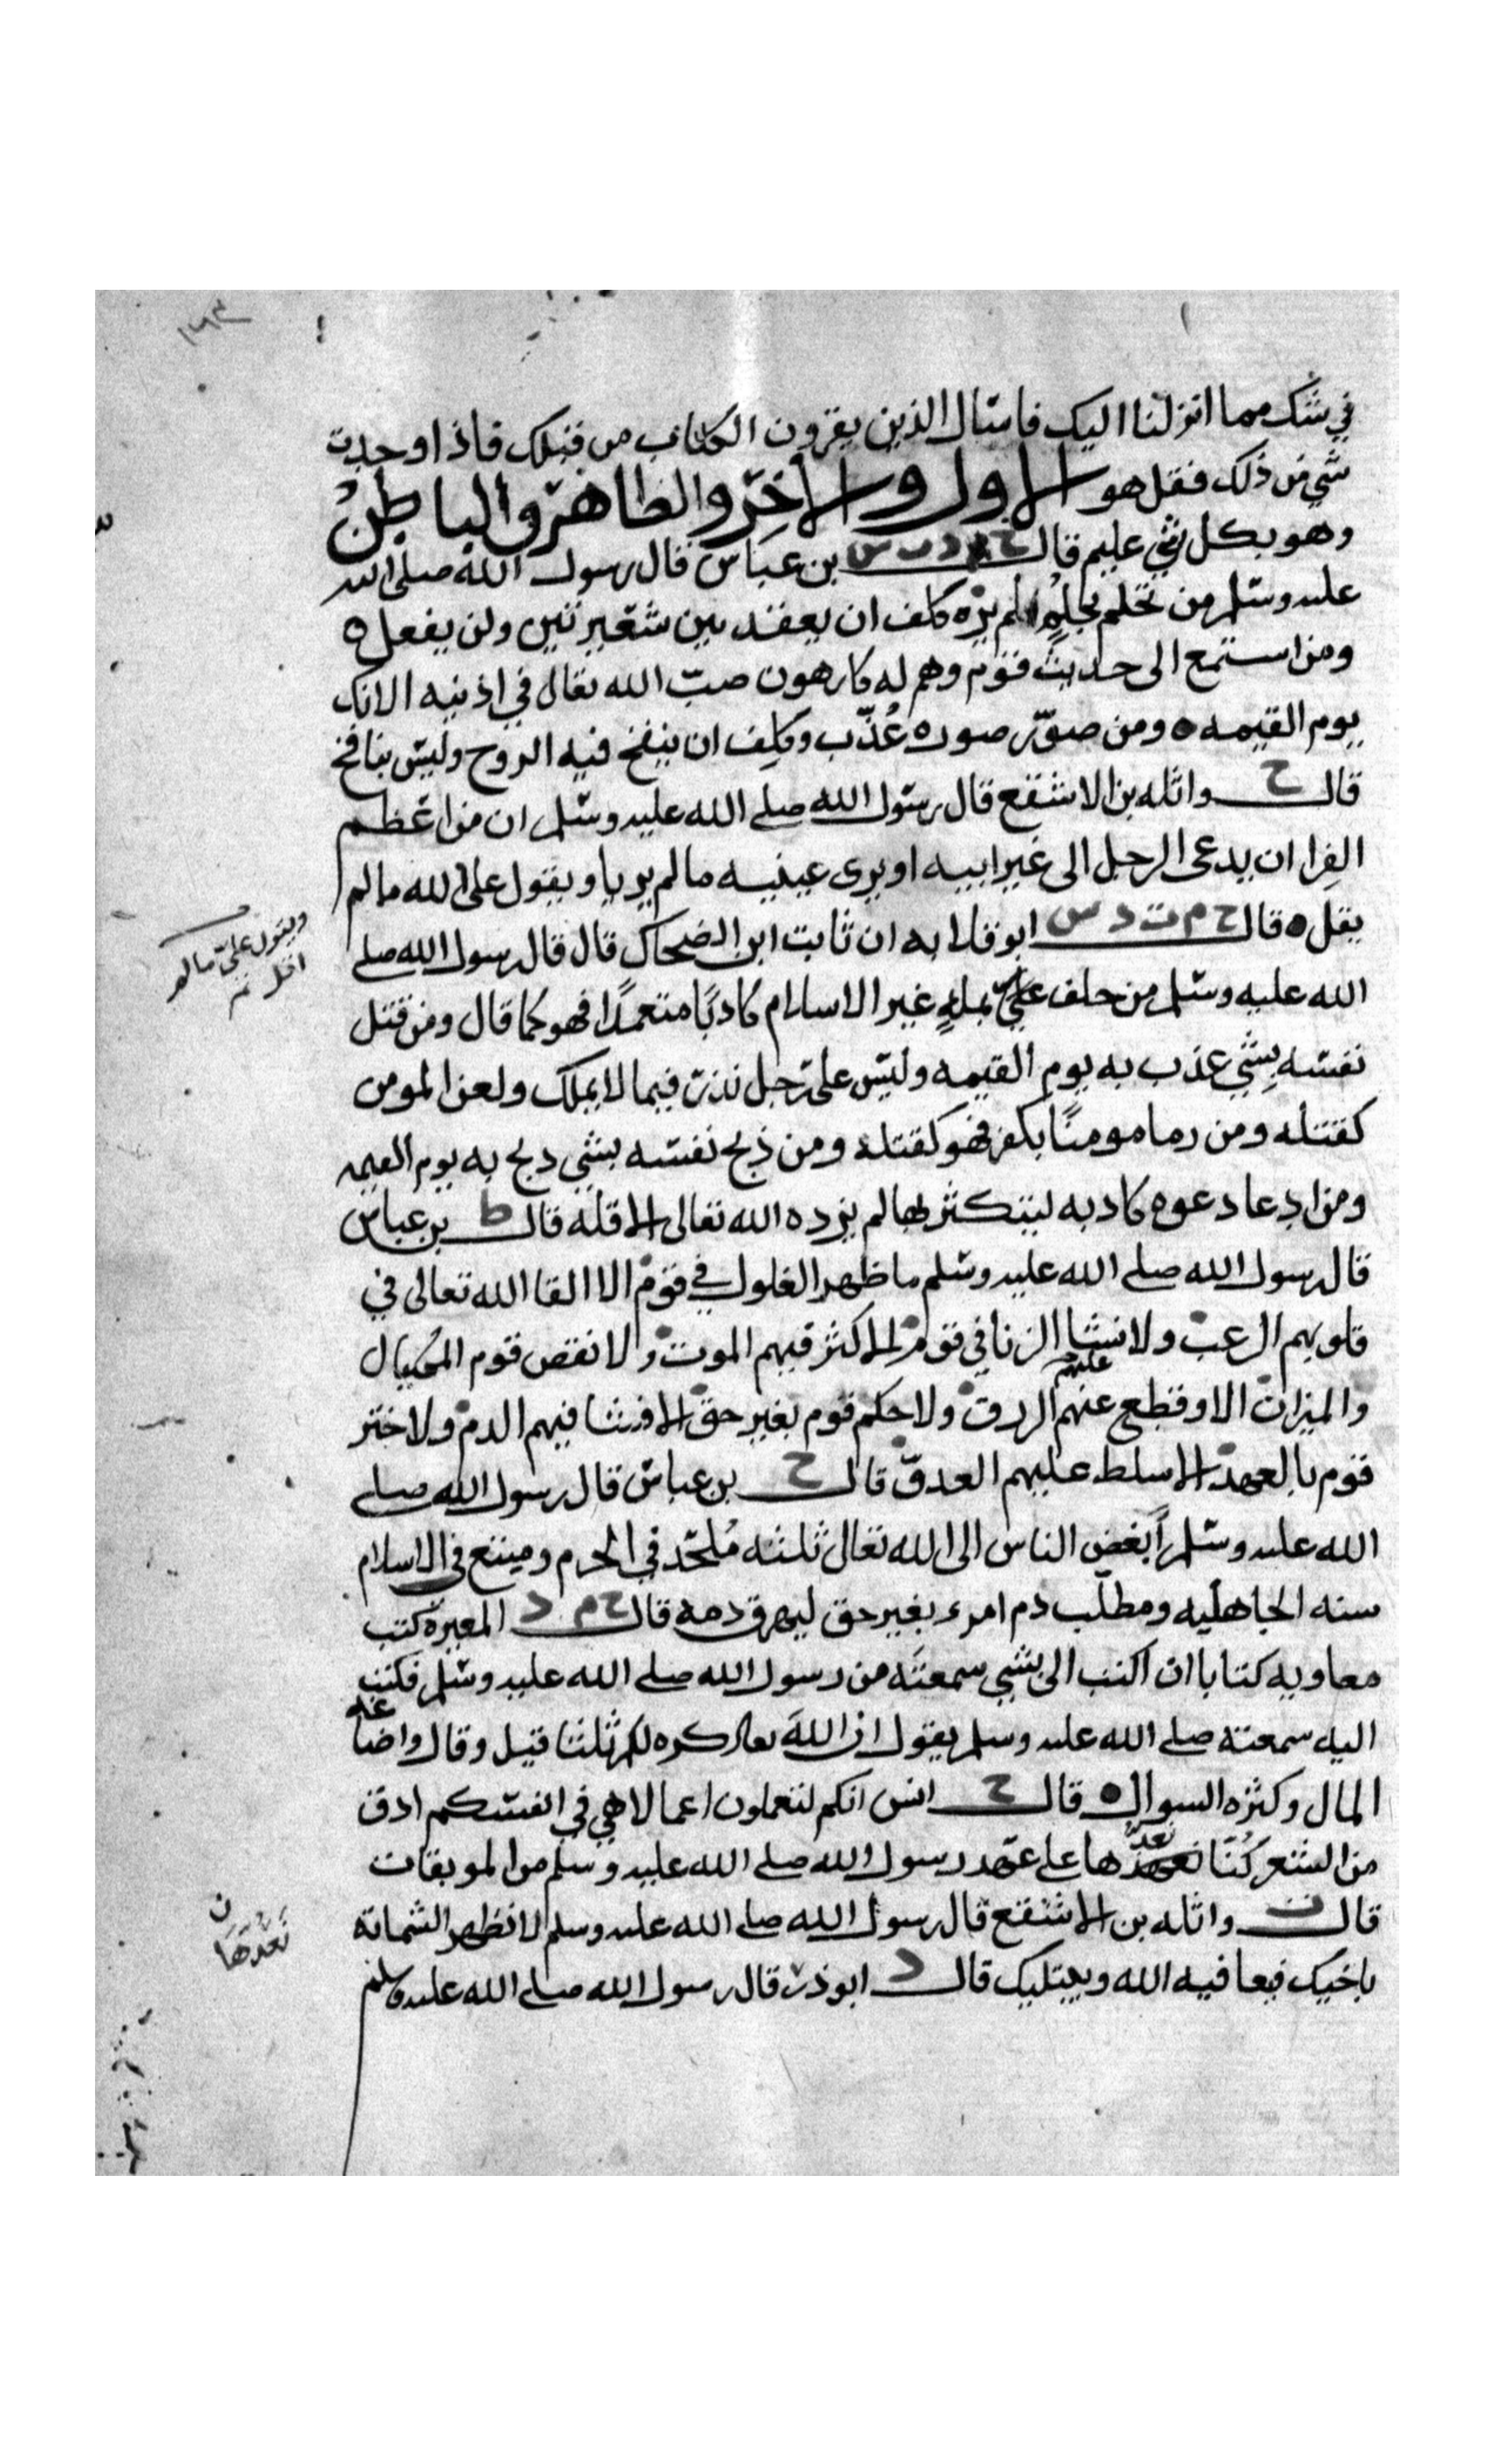 في شك مما انزلنا اليك فاسال الذين يقرون الكتاب من قبلك فاذا وجدت
شي من ذلك فقل هو الاول والاخر والظاهر والباطن
وهو بكل شي عليم قال خ د ت س بن عباس قال رسول الله صلى الله
عليه وسلم من تحلم بحلم لم يره كلف ان يعقد بين شعيرتين ولن يفعل ه
ومن استمع الى حديث قوم وهم له كارهون صب الله تعالى في اذنيه الانك
يوم القيمه ه ومن صور صوره عذب وكلف ان ينفخ فيه الروح وليس بنافخ
قال خ واثله بن الاسقع قال رسول الله صلى الله عليه وسلم ان من اعظم
الفرا ان يدعى الرجل الى غير ابيه او يرى عينيه ما لم يريا ويقول على الله ما لم
يقل ه قال خ م ت د س ابو قلابه ان ثابت ابن الضحاك قال قال رسول الله صلى
ويقول علي ما لم
اقل
الله عليه وسلم من حلف على بملة غير الاسلام كاذبا متعمدا فهو كما قال ومن قتل
نفسه بشي عذب به يوم القيمه وليس على رجل نذر فيما لا يملك ولعن المومن
كقتله ومن رما مومنا بكفر فهو كقتله ومن ذبح نفسه بشي ذبح به يوم القيمه
ومن ادعا دعوه كاذبه ليتكثر بها لم يزده الله تعالى الا قله قال ط بن عباس
قال رسول الله صلى الله عليه وسلم ما ظهر الغلول في قوم الا القا الله تعالى في
قلوبهم الرعب ولا فشا الزنا في قوم الا كثر فيهم الموت ولا نقص قوم المكيال
والميزان الا وقطع عنهم الرزق ولا حكم قوم بغير حق الا فشا فيهم الدم ولا ختر
قوم بالعهد الا سلط عليهم العدو قال خ بن عباس قال رسول الله صلى
الله عليه وسلم ابغض الناس الى الله تعالى ثلثه ملحد في الحرم ومبتغ في الاسلام
سنه الجاهليه ومطلب دم امرء بغير حق ليهرق دمه قال خ م د المغيرة كتب
معاويه كتابا ان اكتب الى بشي سمعته من رسول الله صلى الله عليه وسلم فكتب
اليه سمعته صلى الله عليه وسلم يقول ان الله تعالى كره لكم ثلثا قيل وقال واضاعه
المال وكثره السوال ه قال خ انس انكم لتعملون اعمالا هي في انفسكم ادق
من الشعر كنا نعدها على عهد رسول الله صلى الله عليه وسلم من الموبقات
قال ت واثله بن الاسقع قال رسول الله صلى الله عليه وسلم لا تظهر الشماتة
ن
نعدها
باخيك فيعافيه الله ويبتليك قال د ابو ذر قال رسول الله صلى الله عليه وسلم